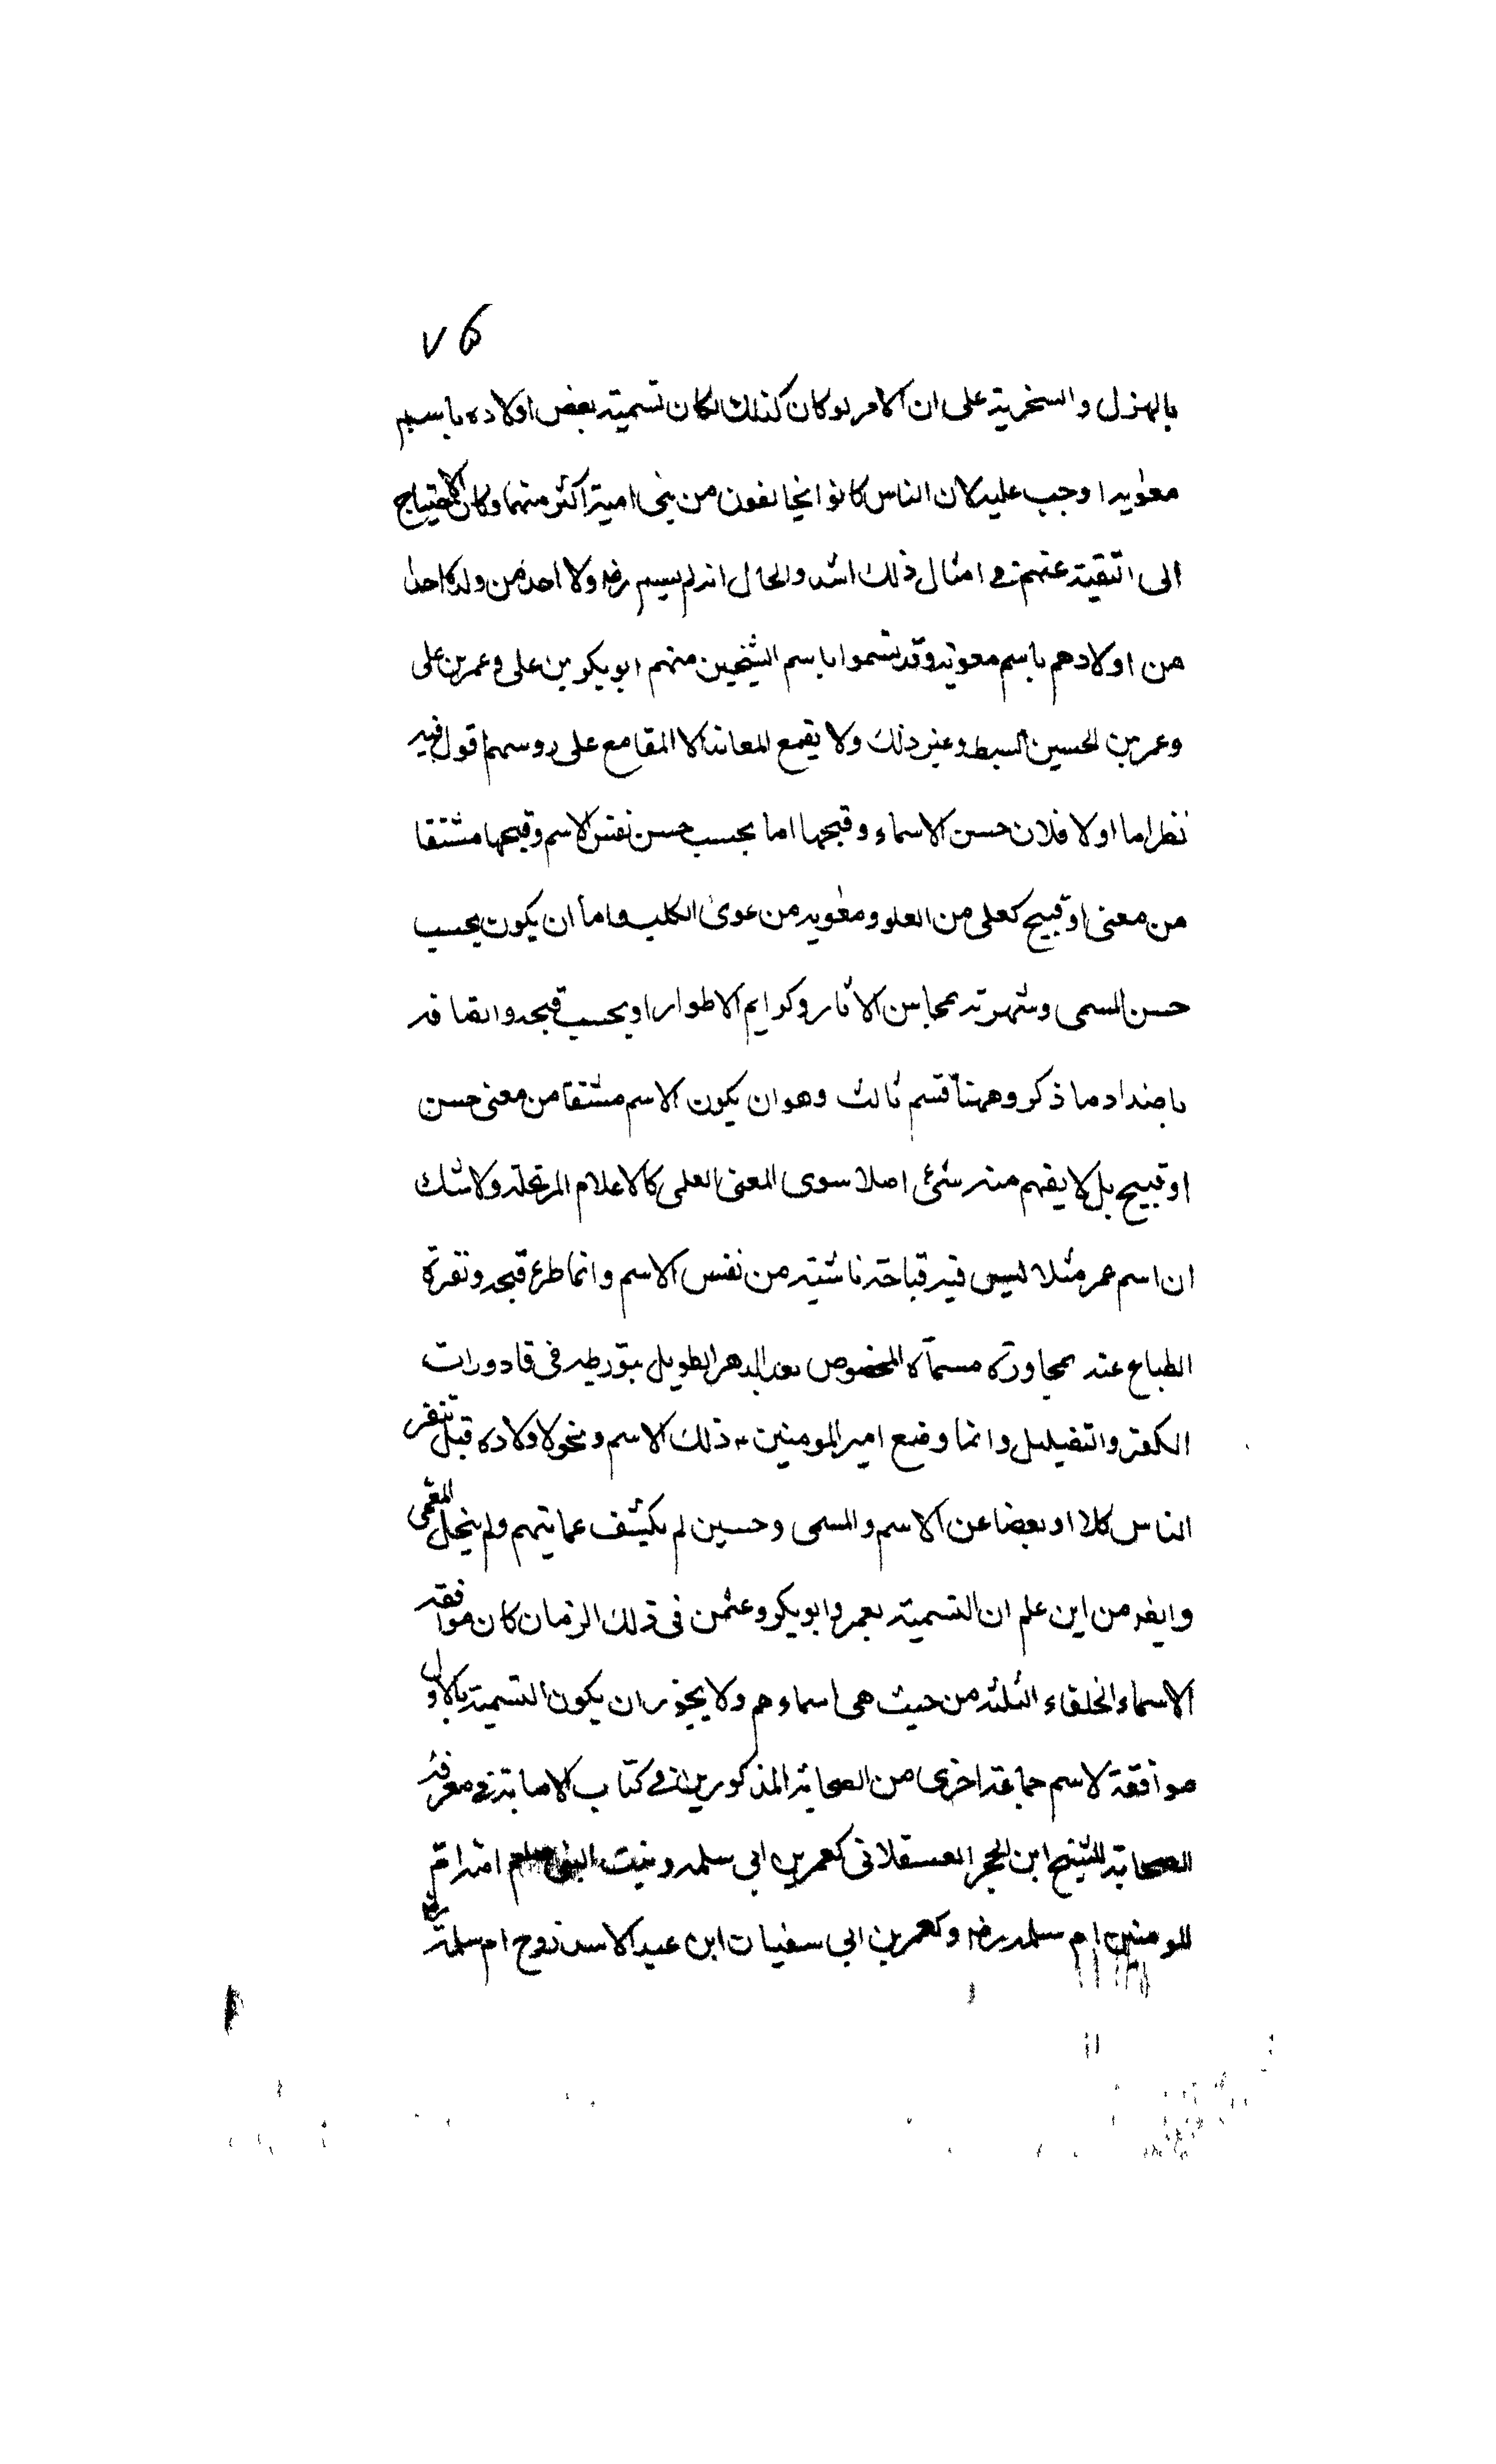 ٧٥
بالهزل والسخرية على ان الامر لو كان كذلك لكان تسمية بعض اولاده باسم
معوية اوجب عليه لان الناس كانوا يخافون من بني امية اكثر منهما وكان الاحتياج
الى التقية عنهم في امثال ذلك اشد والحال انه لم يسم رضه ولا احد من ولده احدا
من اولادهم باسم معوية وقد تسموا باسم الشيخين منهم ابو بكر بن على وعمر بن على
وعمر بن الحسين السبط وغير ذلك ولا يقمع المعاند الا المقامع على روسهم اقول فيه
نظر اما اولا فلان حسن الاسماء وقبحها اما بحسب حسن نفس الاسم وقبحها مشتقا
من معنى او قبيح كعلى من العلو ومعوية من عوى الكلب واما ان يكون بحسب
حسن المسمى وشهرته بمحاسن الاثار وكرايم الاطوار او بحسب قبحه واتصافه
باضداد ما ذكر وههنا قسم ثالث وهو ان يكون الاسم مشتقا من معنى حسن
او قبيح بل لا يفهم منه شئ اصلا سوى المعنى العلمى كالاعلام المرتجلة ولا شك
ان اسم عمر مثلا ليس فيه قباحة ناشئة من نفس الاسم وانما طرء قبحه ونفرة
الطباع عنه بمجاورة مسماه المخصوص بعد الدهر الطويل بتورطه في قاذورات
الكفر والتضليل وانما وضع امير المومنين ذلك الاسم ونحوه لاولاده قبل تنفر
الناس كلا او بعضا عن الاسم والمسمى وحسين لم يكشف عمايتهم ولم ينحل المعمى
وايضا من اين علم ان التسمية بعمر وابو بكر وعثمن في ذلك الزمان كان موافقة
الاسماء الخلفاء الثلثة من حيث هي اسماوهم ولا يجوز ان يكون التسمية بالاول
موافقة لاسم جماعة اخرى من الصحابة المذكورين في كتاب الاصابة في معرفة
الصحابة للشيخ ابن الحجر العسقلانى كعمر بن ابي سلمه ربيب النبى صلعم امه ام
المومنين ام سلمه رضه وكعمر بن ابي سفيان ابن عبد الاسد زوج ام سلمة